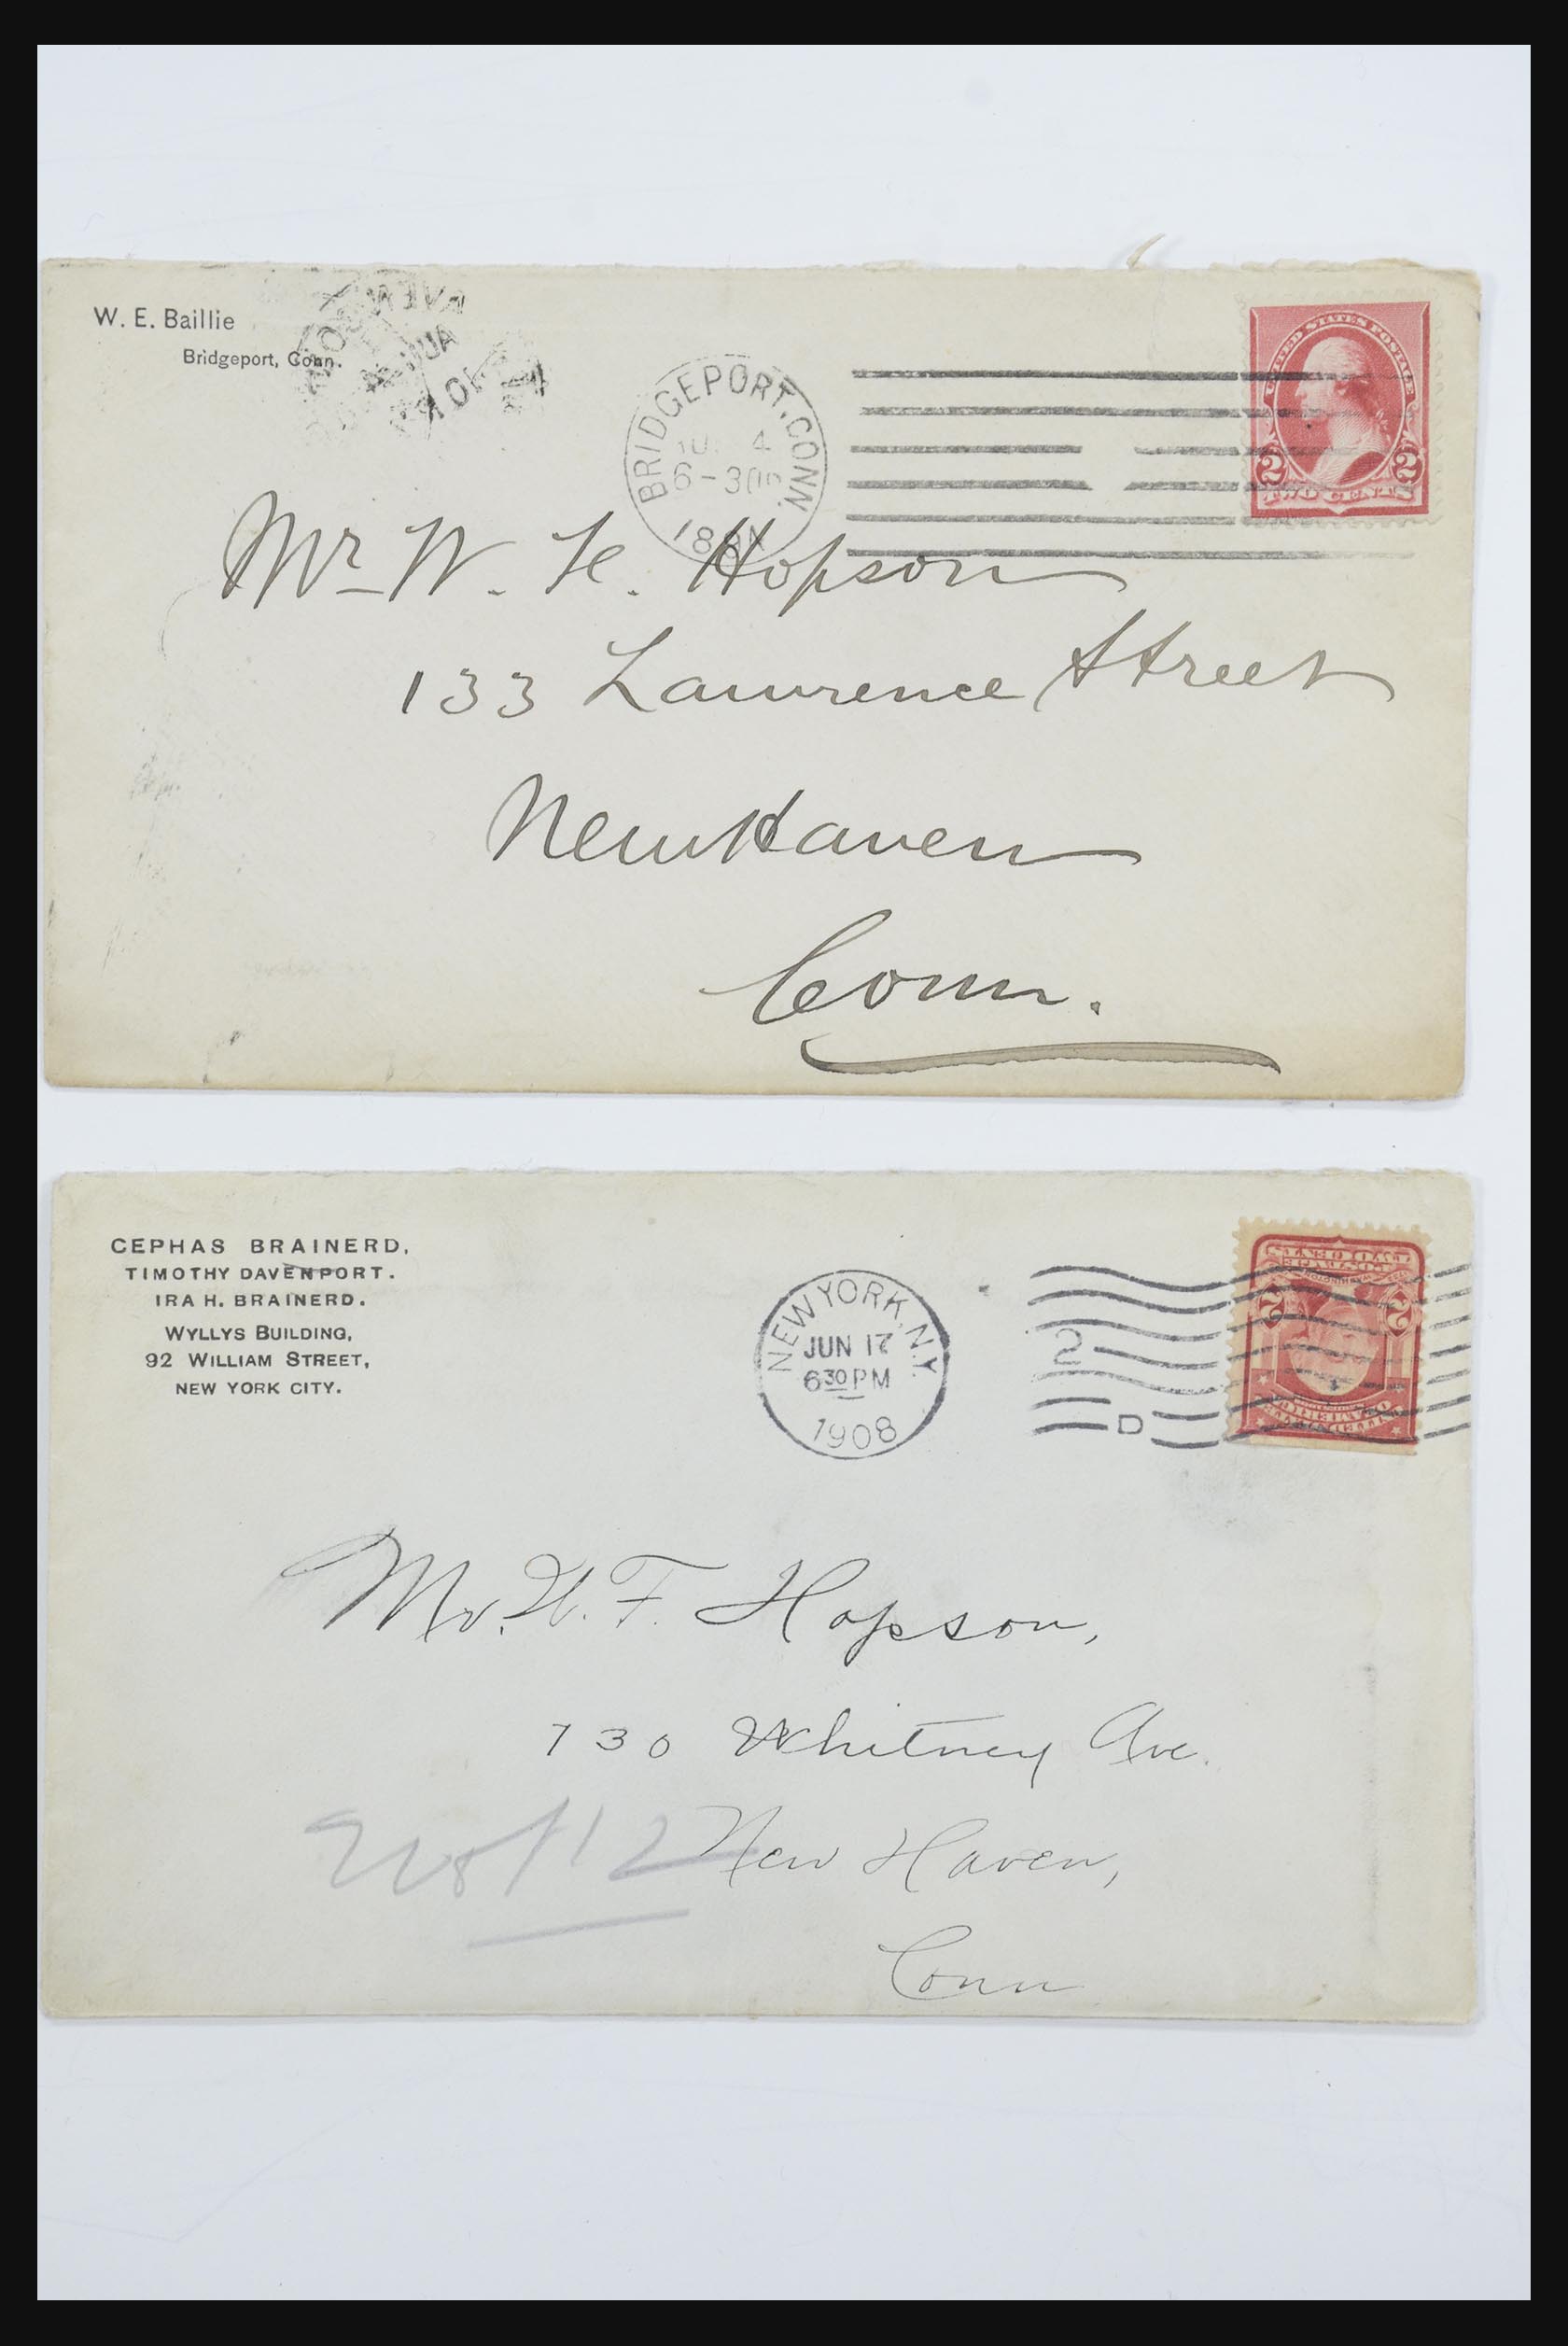 W. E. Baillie
Bridgeport, Conn.
BRIDGEPORT, CONN.
4
6-30P
UNITED STATES POSTAGE
2 2
TWO CENTS
Mr W. F. Hopson
133 Lawrence Street
New Haven
Conn.
CEPHAS BRAINERD,
TIMOTHY DAVENPORT.
IRA H. BRAINERD.
WYLLYS BUILDING,
92 WILLIAM STREET,
NEW YORK CITY.
NEW YORK, N.Y.
JUN 17
6 30 PM
1908
2
D
2 2
POSTAGE
TWO CENTS
Mr. W. F. Hopson,
730 Whitney Ave.
New Haven,
Conn